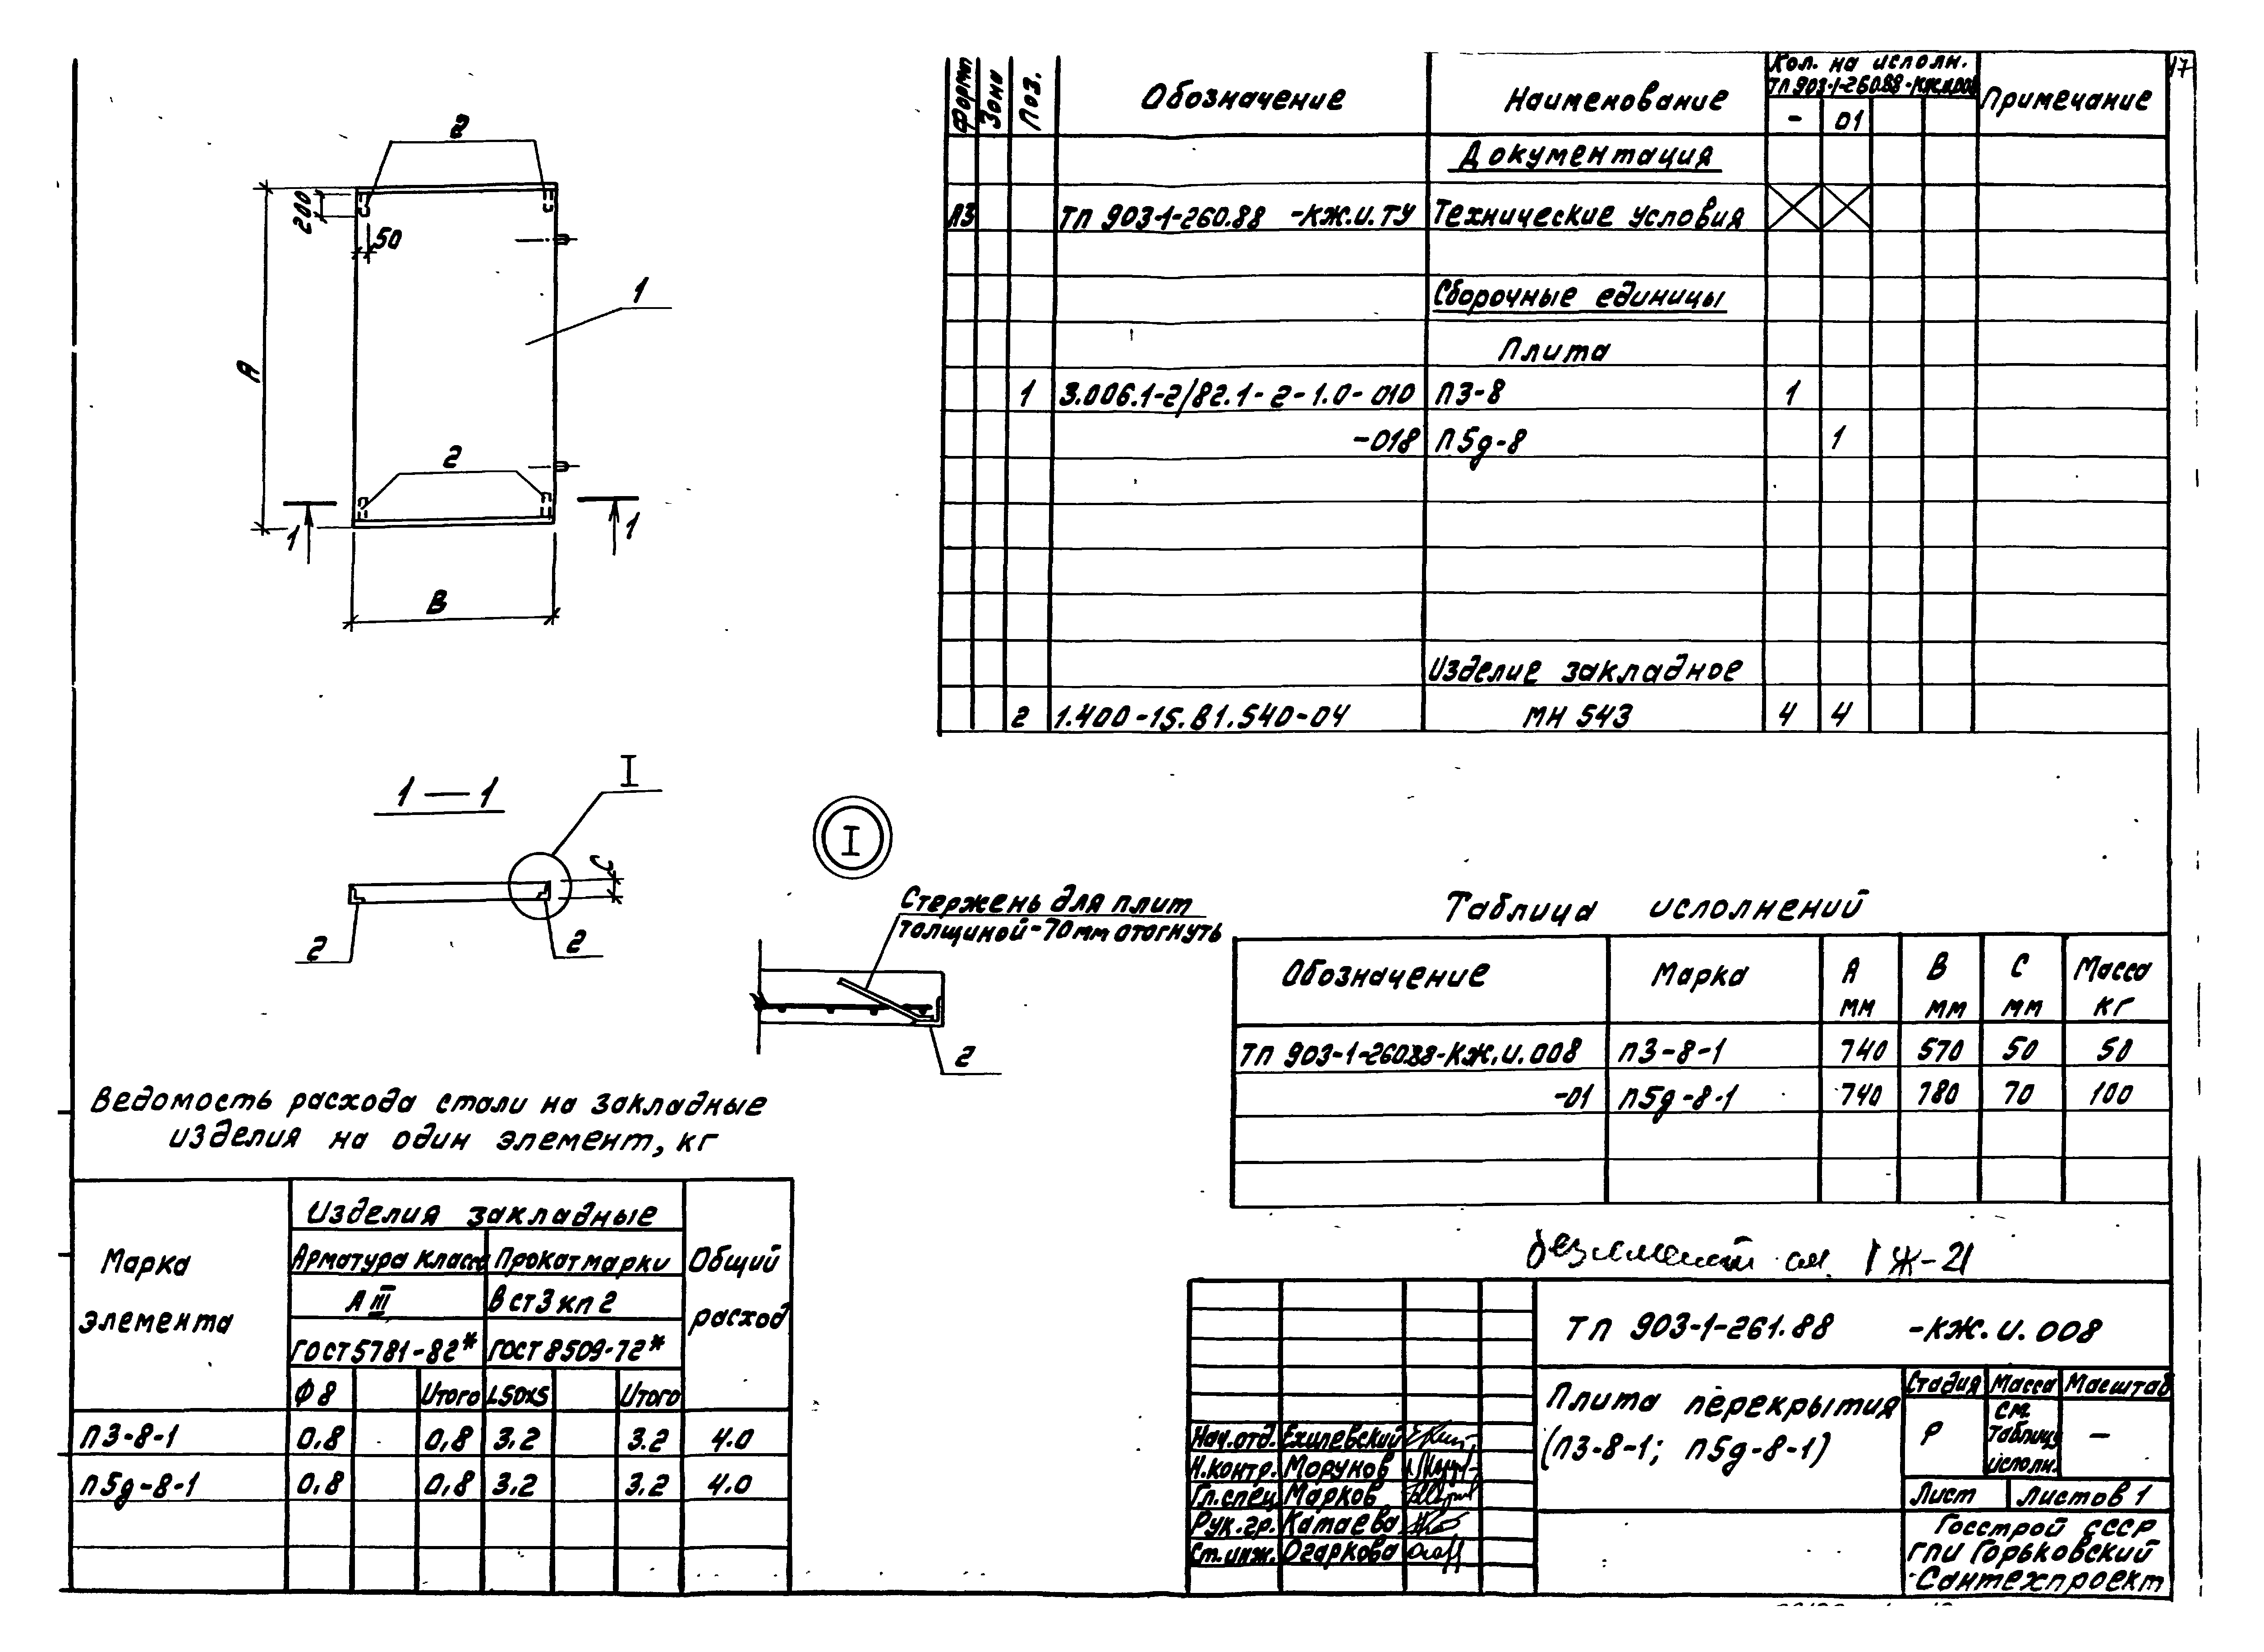 17
Формат Зона Поз. Обозначение Наименование Кол. на исполн. Примечание
ТП 903-1-260.88-КЖ.И.008
- 01
Документация
А3 ТП 903-1-260.88 -КЖ.И.ТУ Технические условия
Сборочные единицы
Плита
1 3.006.1-2/82.1-2-1.0-010 П3-8 1
-018 П5д-8 1
Изделие закладное
2 1.400-15.В1.540-04 МН 543 4 4
2
200
50
1
А
2
1 1
В
1—1
I
С
2 2
I
Стержень для плит
толщиной-70мм отогнуть
2
Таблица исполнений
Обозначение Марка А мм В мм С мм Масса кг
ТП 903-1-260.88-КЖ.И.008 П3-8-1 740 570 50 50
-01 П5д-8-1 740 780 70 100
Ведомость расхода стали на закладные
изделия на один элемент, кг
Марка элемента Изделия закладные Общий расход
Арматура класса Прокат марки
А III В ст3 кп 2
ГОСТ 5781-82* ГОСТ 8509-72*
Ф8 Итого L50х5 Итого
П3-8-1 0,8 0,8 3.2 3.2 4.0
П5д-8-1 0,8 0,8 3.2 3.2 4.0
ТП 903-1-261.88 -КЖ.И.008
Плита перекрытия
(П3-8-1; П5д-8-1)
Стадия Масса Масштаб
Р См. таблицу исполн. —
Лист Листов 1
Госстрой СССР
ГПИ Горьковский
Сантехпроект
Нач.отд. Ехилевский
Н.контр. Морунов
Гл.спец. Марков
Рук.гр. Катаева
Ст.инж. Огаркова